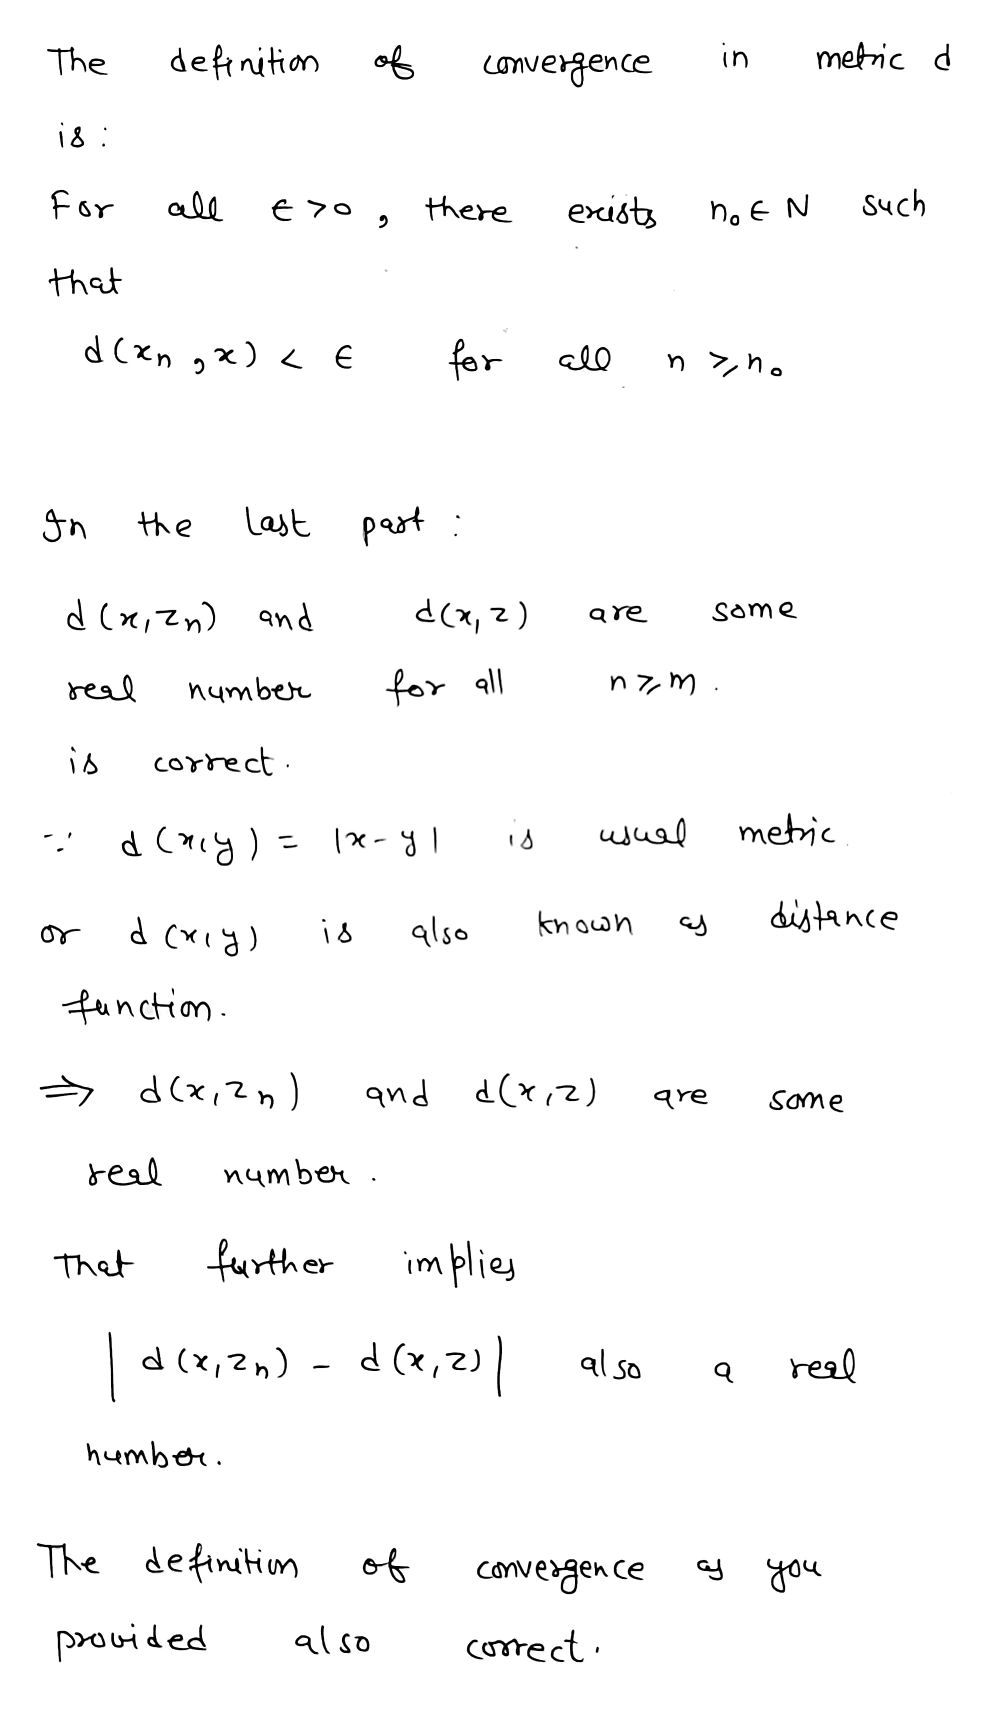 The definition of convergence in metric d
is :
For all ϵ > 0 , there exists n₀ ∈ N such
that
d(xₙ , x) < ϵ for all n ⩾ n₀
In the last part :
d(x, zₙ) and d(x, z) are some
real number for all n ⩾ m .
is correct .
∵ d(x, y) = |x - y| is usual metric .
or d(x, y) is also known as distance
function .
⇒ d(x, zₙ) and d(x, z) are some
real number .
That further implies
| d(x, zₙ) - d(x, z) | also a real
number .
The definition of convergence as you
provided also correct .